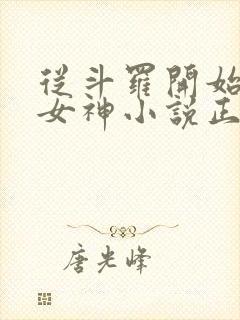 從斗羅開始
女神小說正
唐光峰